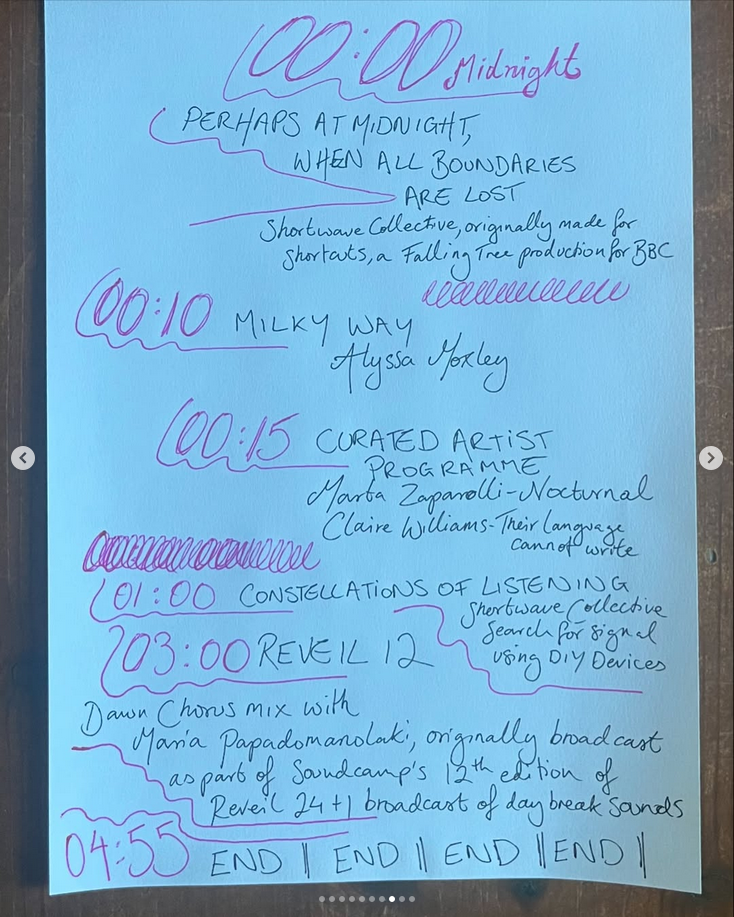 00:00 Midnight
PERHAPS AT MIDNIGHT,
WHEN ALL BOUNDARIES
ARE LOST
Shortwave Collective, originally made for
shortcuts, a Falling Tree production for BBC
00:10 MILKY WAY
Alyssa Moxley
00:15 CURATED ARTIST
PROGRAMME
Marta Zaparolli - Nocturnal
Claire Williams - Their language
cannot write
01:00 CONSTELLATIONS OF LISTENING
Shortwave Collective
Search for signal
using DIY Devices
03:00 REVEIL 12
Dawn Chorus mix with
Maria Papadomanolaki, originally broadcast
as part of Soundcamp's 12th edition of
Reveil 24+1 broadcast of daybreak sounds
04:55 END || END || END || END ||